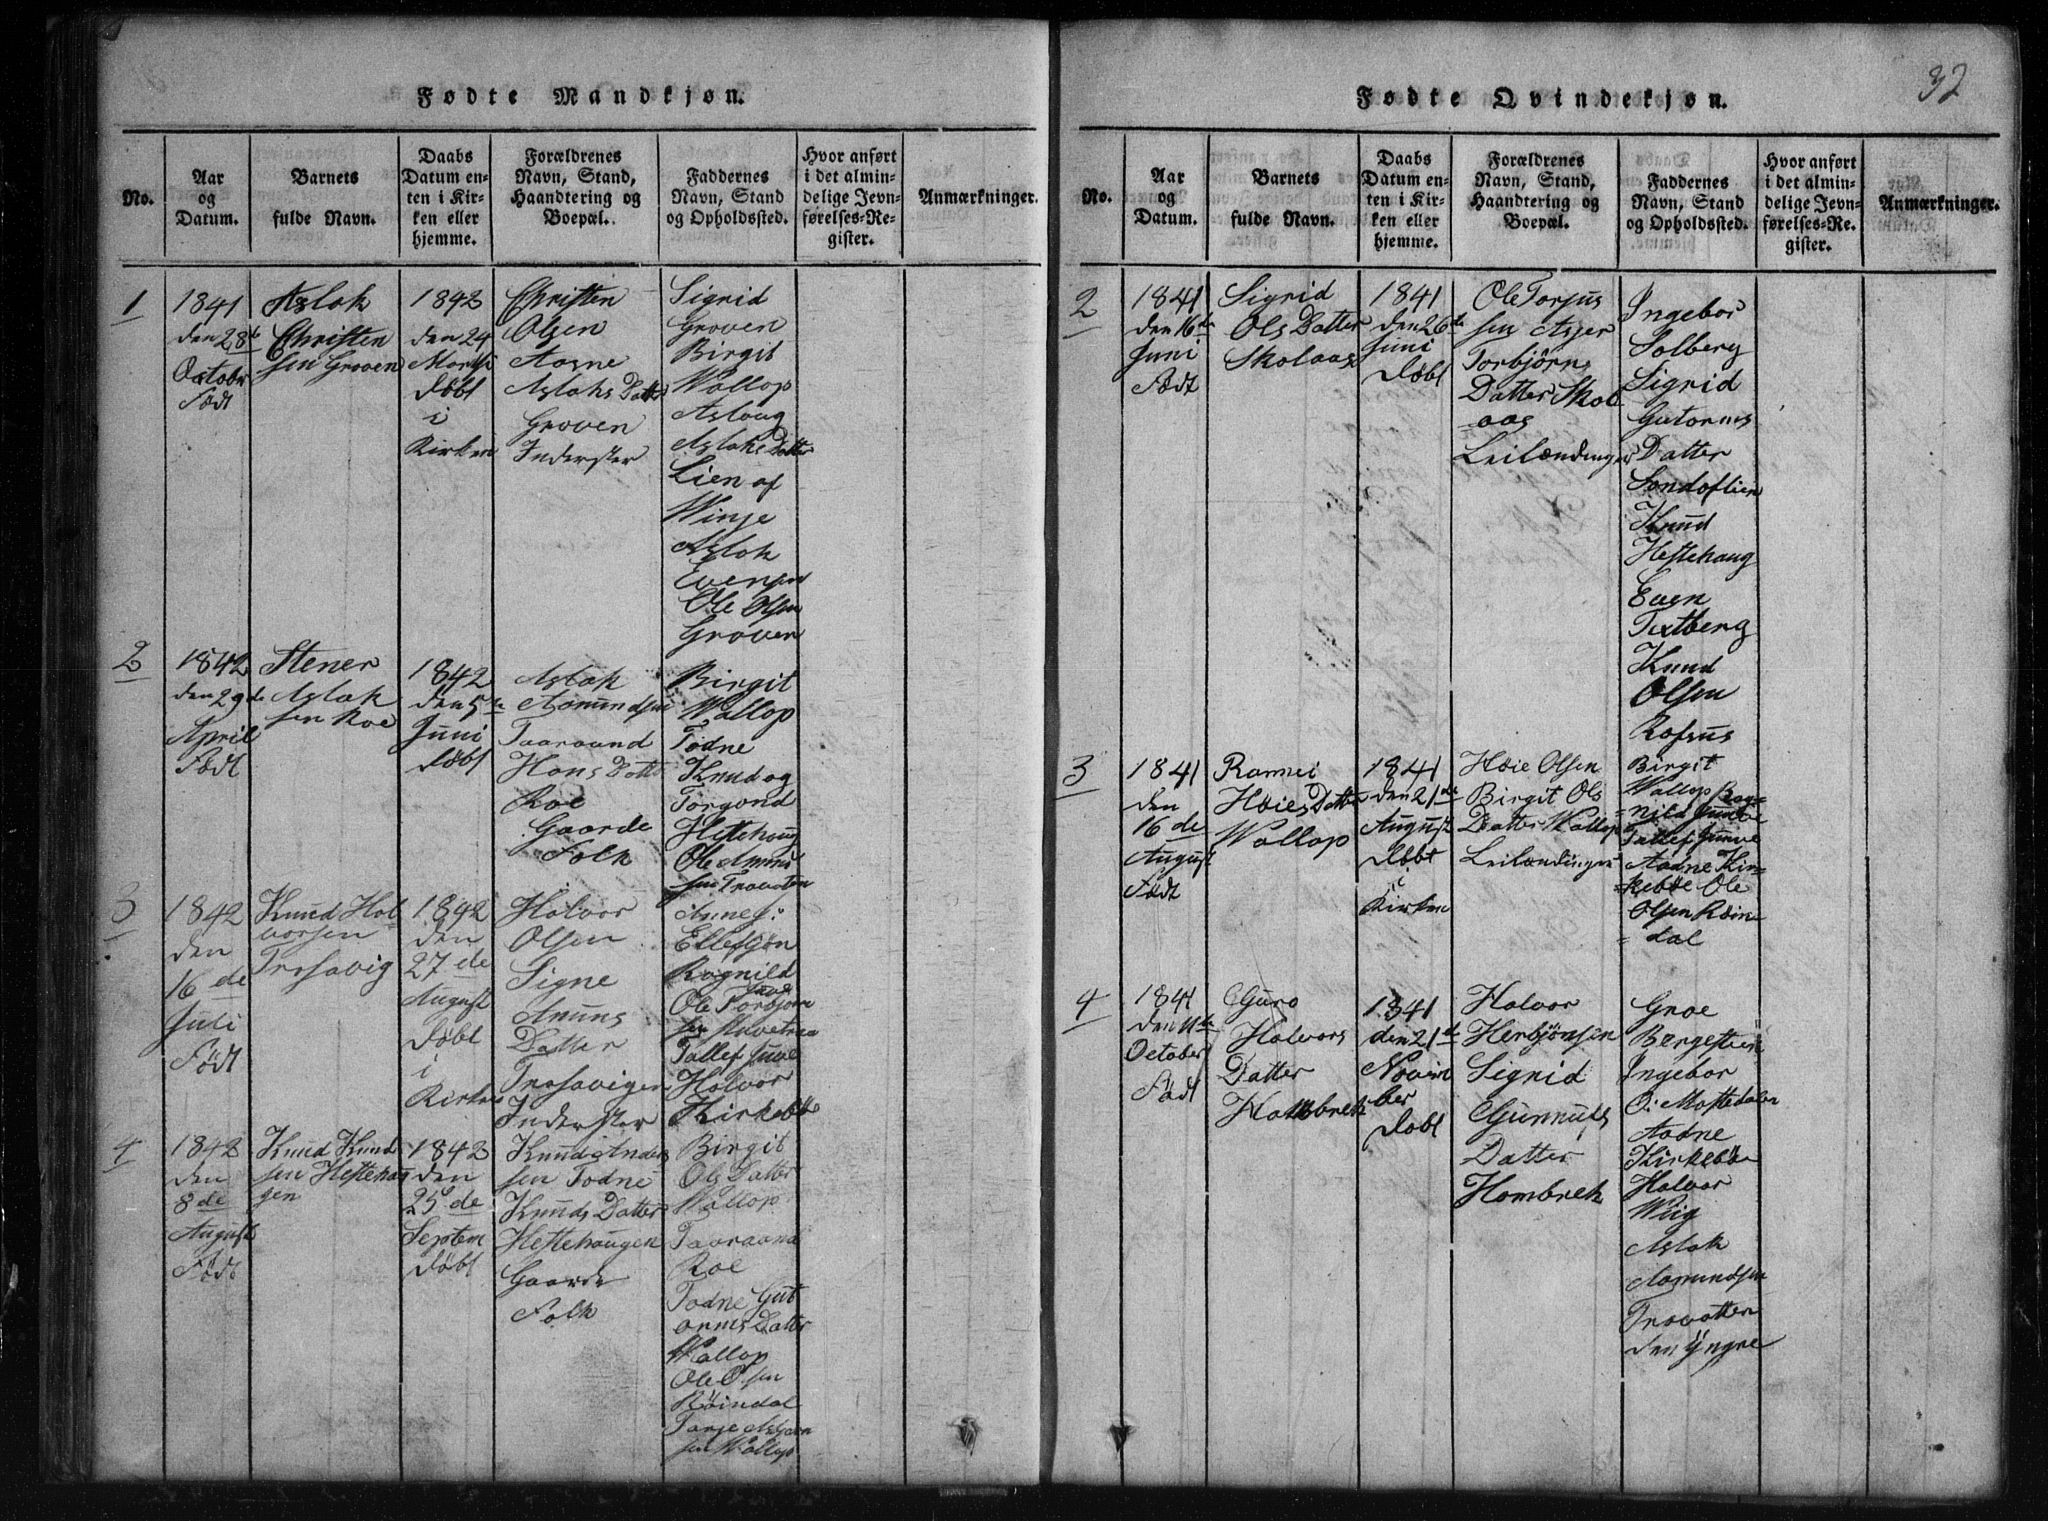 32
Fødte Mandkjøn.
No.
Aar
og
Datum.
Barnets
fulde Navn.
Daabs
Datum en-
ten i Kir-
ken eller
hjemme.
Forældrenes
Navn, Stand,
Haandtering og
Boepæl.
Faddernes
Navn, Stand
og Opholdssted.
Hvor anført
i det almin-
delige Jevn-
førelses-Re-
gister.
Anmærkninger.
1
1841
den 28de
Octobr
Født
Aslak
Christen
sen Groven
1842
den 29
Døbt
i
Kirken
Christen
Olsen
Aasne
Aslaks Datter
Groven
Inderster
Sigrid
Groven
Birgit
Wallop
Aslaug
Aslaks Datter
Lien af
Winje
Aslak
Evensen
Ole Olsen
Groven
2
1842
den 29de
April
Født
Stener
Aslak
sen Roe
1842
den 5te
Juni
Døbt
Aslak
Aamundsen
Taaraand
Hans Datter
Roe
Gaarde
Folk
Birgit
Wallop
Todne
Knud og
Torgond
Hettehaug
Ole Amun
sen Travaten
3
1842
den
16 de
Juli
Født
Knud Hal
vorsen
Trosavig
1842
den
27 de
August
Døbt
i
Kirken
Halvor
Olsen
Signe
Amuns
Datter
Trosavigen
Inderster
Anne
Ellefsjøn
Ragnild
Juve
Ole Torbjørn
sen
Tallef Juve
Halvor
Kirkebøe
4
1842
den
8 de
August
Født
Knud Knud
sen Hettehau
gen
1842
den
25 de
Septem
Døbt
Knud Anders
sen Todne
Knuds Datter
Hettehaugen
Gaarde
Folk
Birgit
Ols Datter
Wallop
Taaraand
Roe
Todne Gut
orms Datter
Wallop
Ole Olsen
Röindal
Tarje Asbjørn
sen Wallop
Fødte Qvindekjøn.
No.
Aar
og
Datum.
Barnets
fulde Navn.
Daabs
Datum en-
ten i Kir-
ken eller
hjemme.
Forældrenes
Navn, Stand,
Haandtering og
Boepæl.
Faddernes
Navn, Stand
og Opholdssted.
Hvor anført
i det almin-
delige Jevn-
førelses-Re-
gister.
Anmærkninger.
2
1841
den 16de
Juni
Født
Sigrid
Ols Datter
Skolaas
1841
den 26te
Juni
Døbt
Ole Torjus
sen Asjer
Torbjörns
Datter Skol
-aas
Leilændinger
Ingebor
Solberg
Sigrid
Gutorms
Datter
Sondoflien
Knud
Hettehaug
Even
Tertberg
Knud
Olsen
Rofsus
3
1841
den
16 de
August
Født
Rannei
Høies Datter
Wallop
1841
den 21de
August
Døbt
i
Kirken
Høie Olsen
Birgit Ols
Datter Wallop
Leilændinger
Birgit
Wallop Rag=
=nild Juve
Tallef Juve
Aadne Kir=
=kebøe Ole
Olsen Røin=
=dal
4
1841
den 11te
October
Født
Guro
Halvors
Datter
Hambrek
1841
den 21de
Novem
ber
Døbt
Halvor
Herbjønsen
Sigrid
Gunnufs
Datter
Hombrek
Groe
Bergestien
Ingebor
O: Mostedalen
Aadne
Kirkebøe
Halvor
Wiig
Aslak
Aamundsen
Travatten
den Yngre